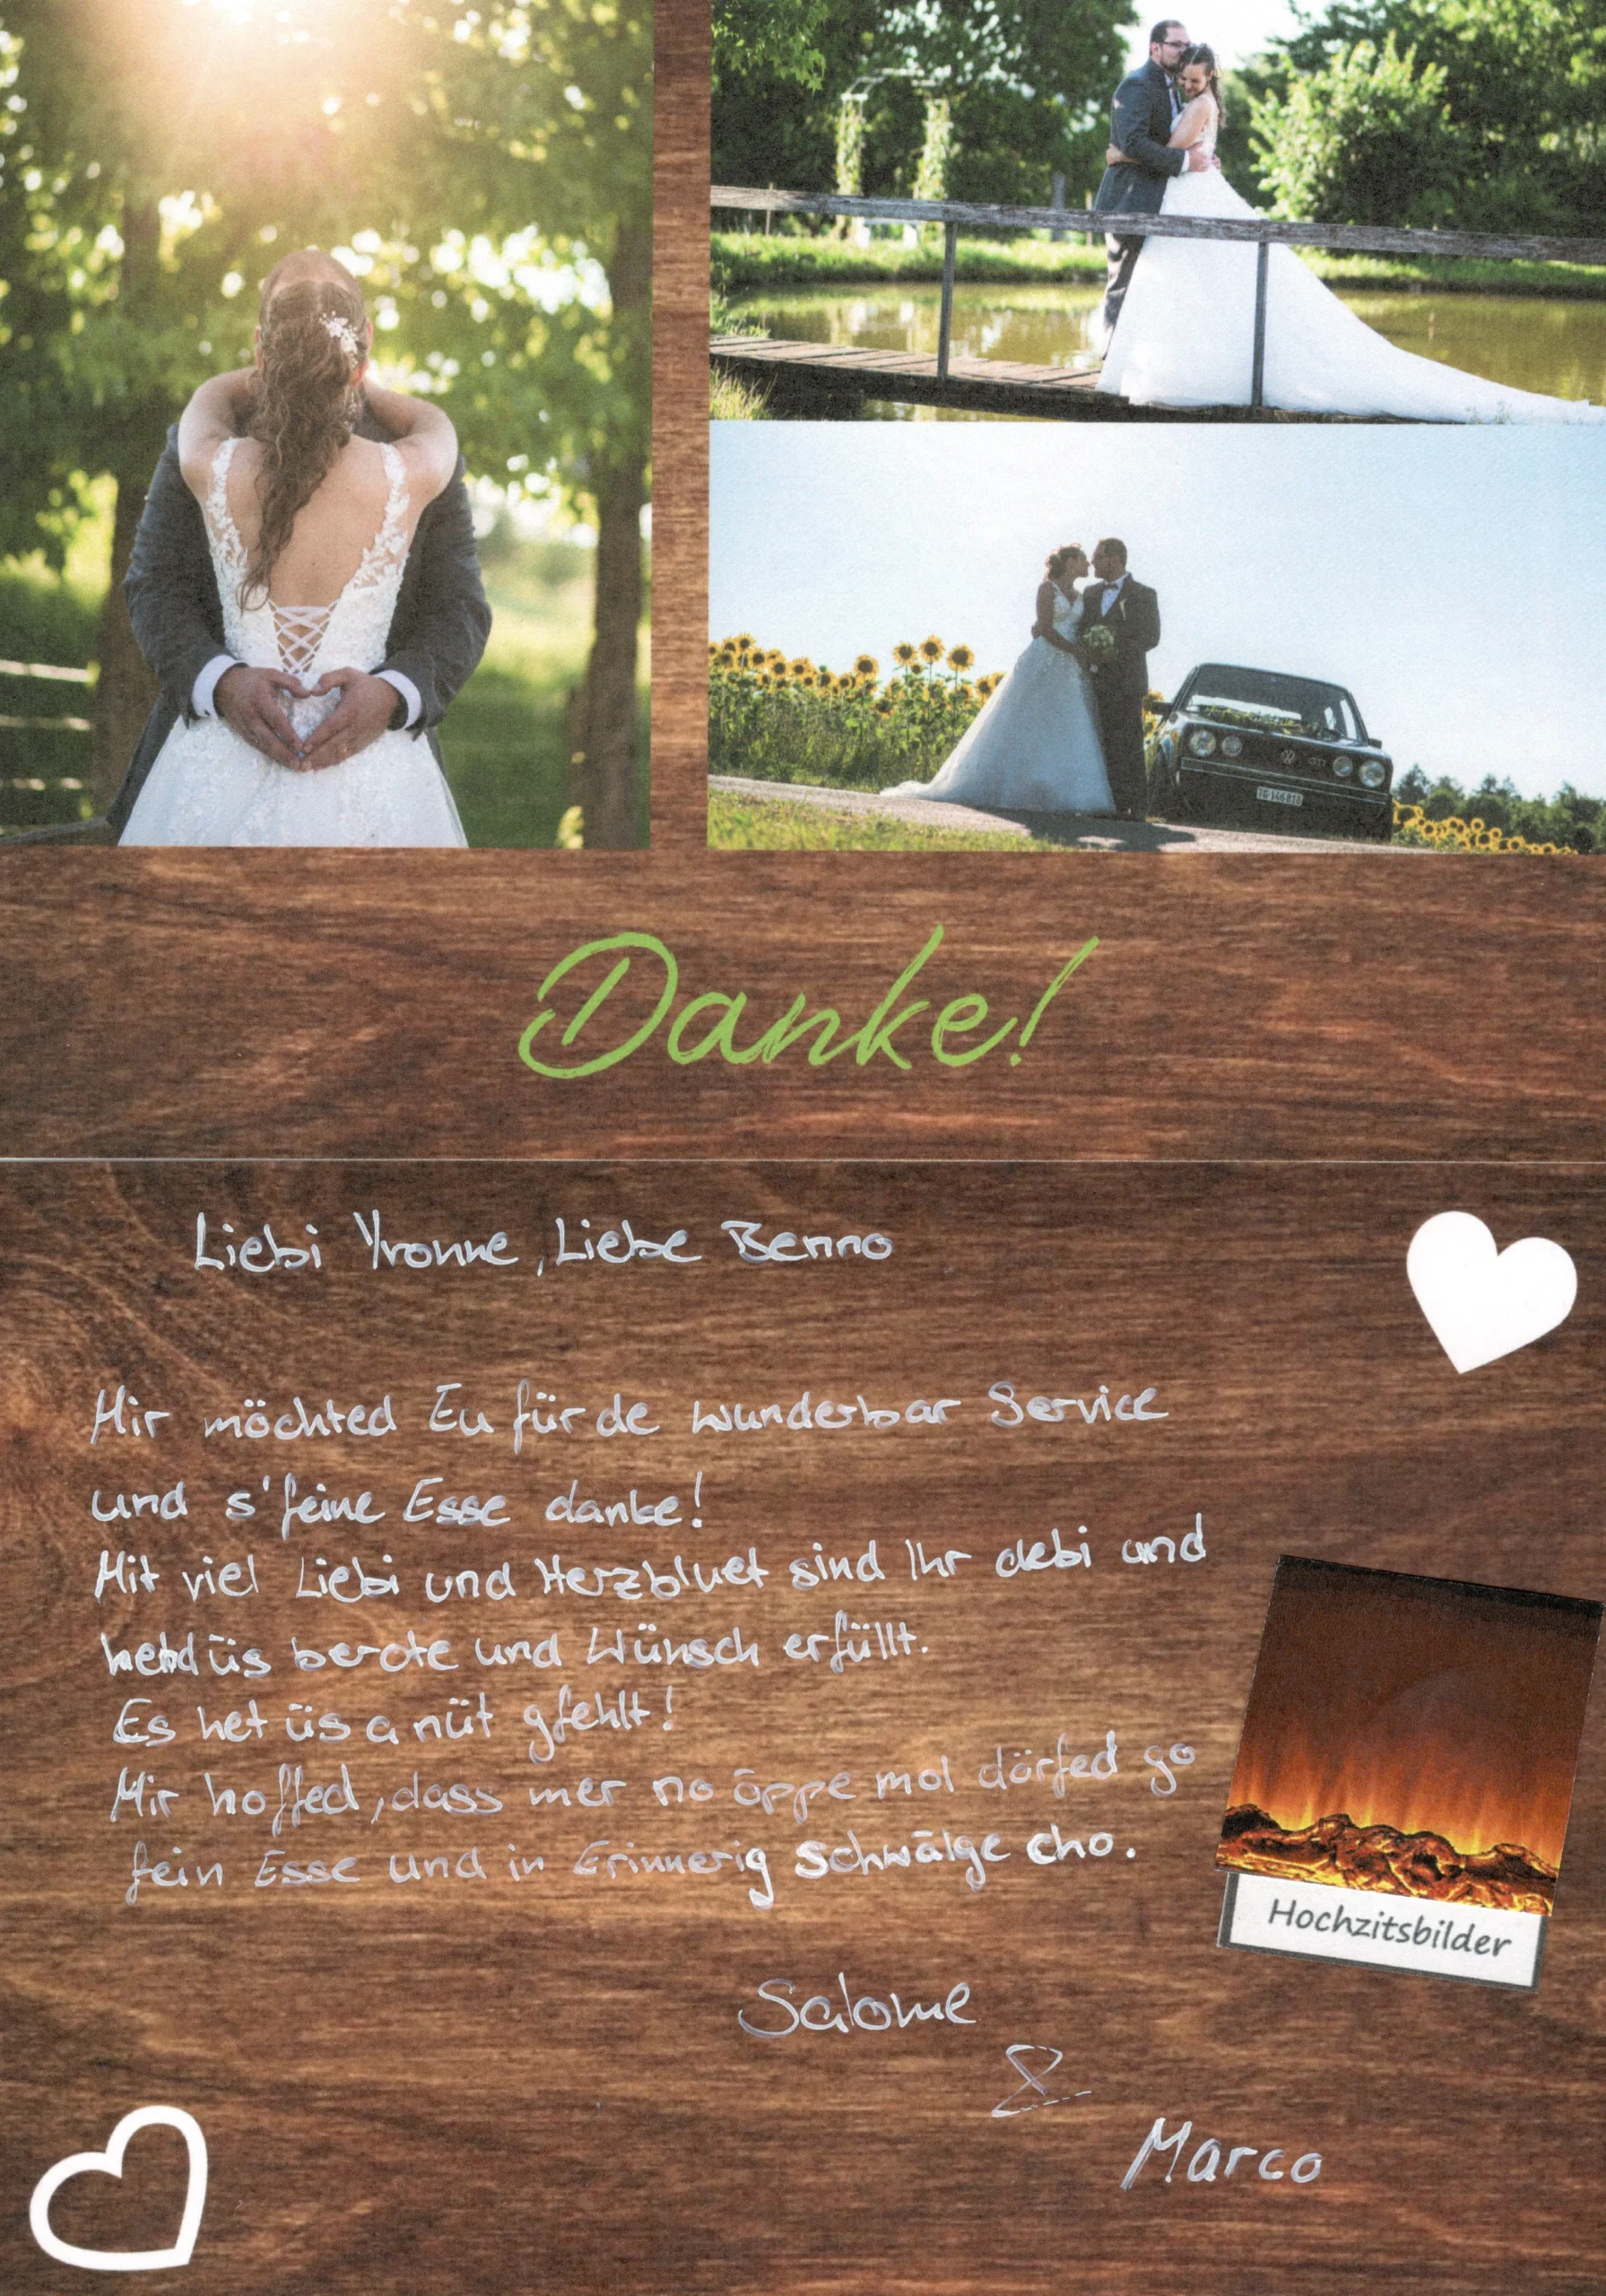 GTI
TG 146818
Danke!
Liebi Yvonne, Liebe Benno
Mir möchted Eu für de wunderbar Service
und s'feine Esse danke!
Mit viel Liebi und Herzbluet sind Ihr debi und
hend üs berote und Wünsch erfüllt.
Es het üs a nüt gfehlt!
Mir hoffed, dass mer no öppe mol dörfed go
fein Esse und in Erinnerig Schwälge cho.
Hochzitsbilder
Salome
&
Marco